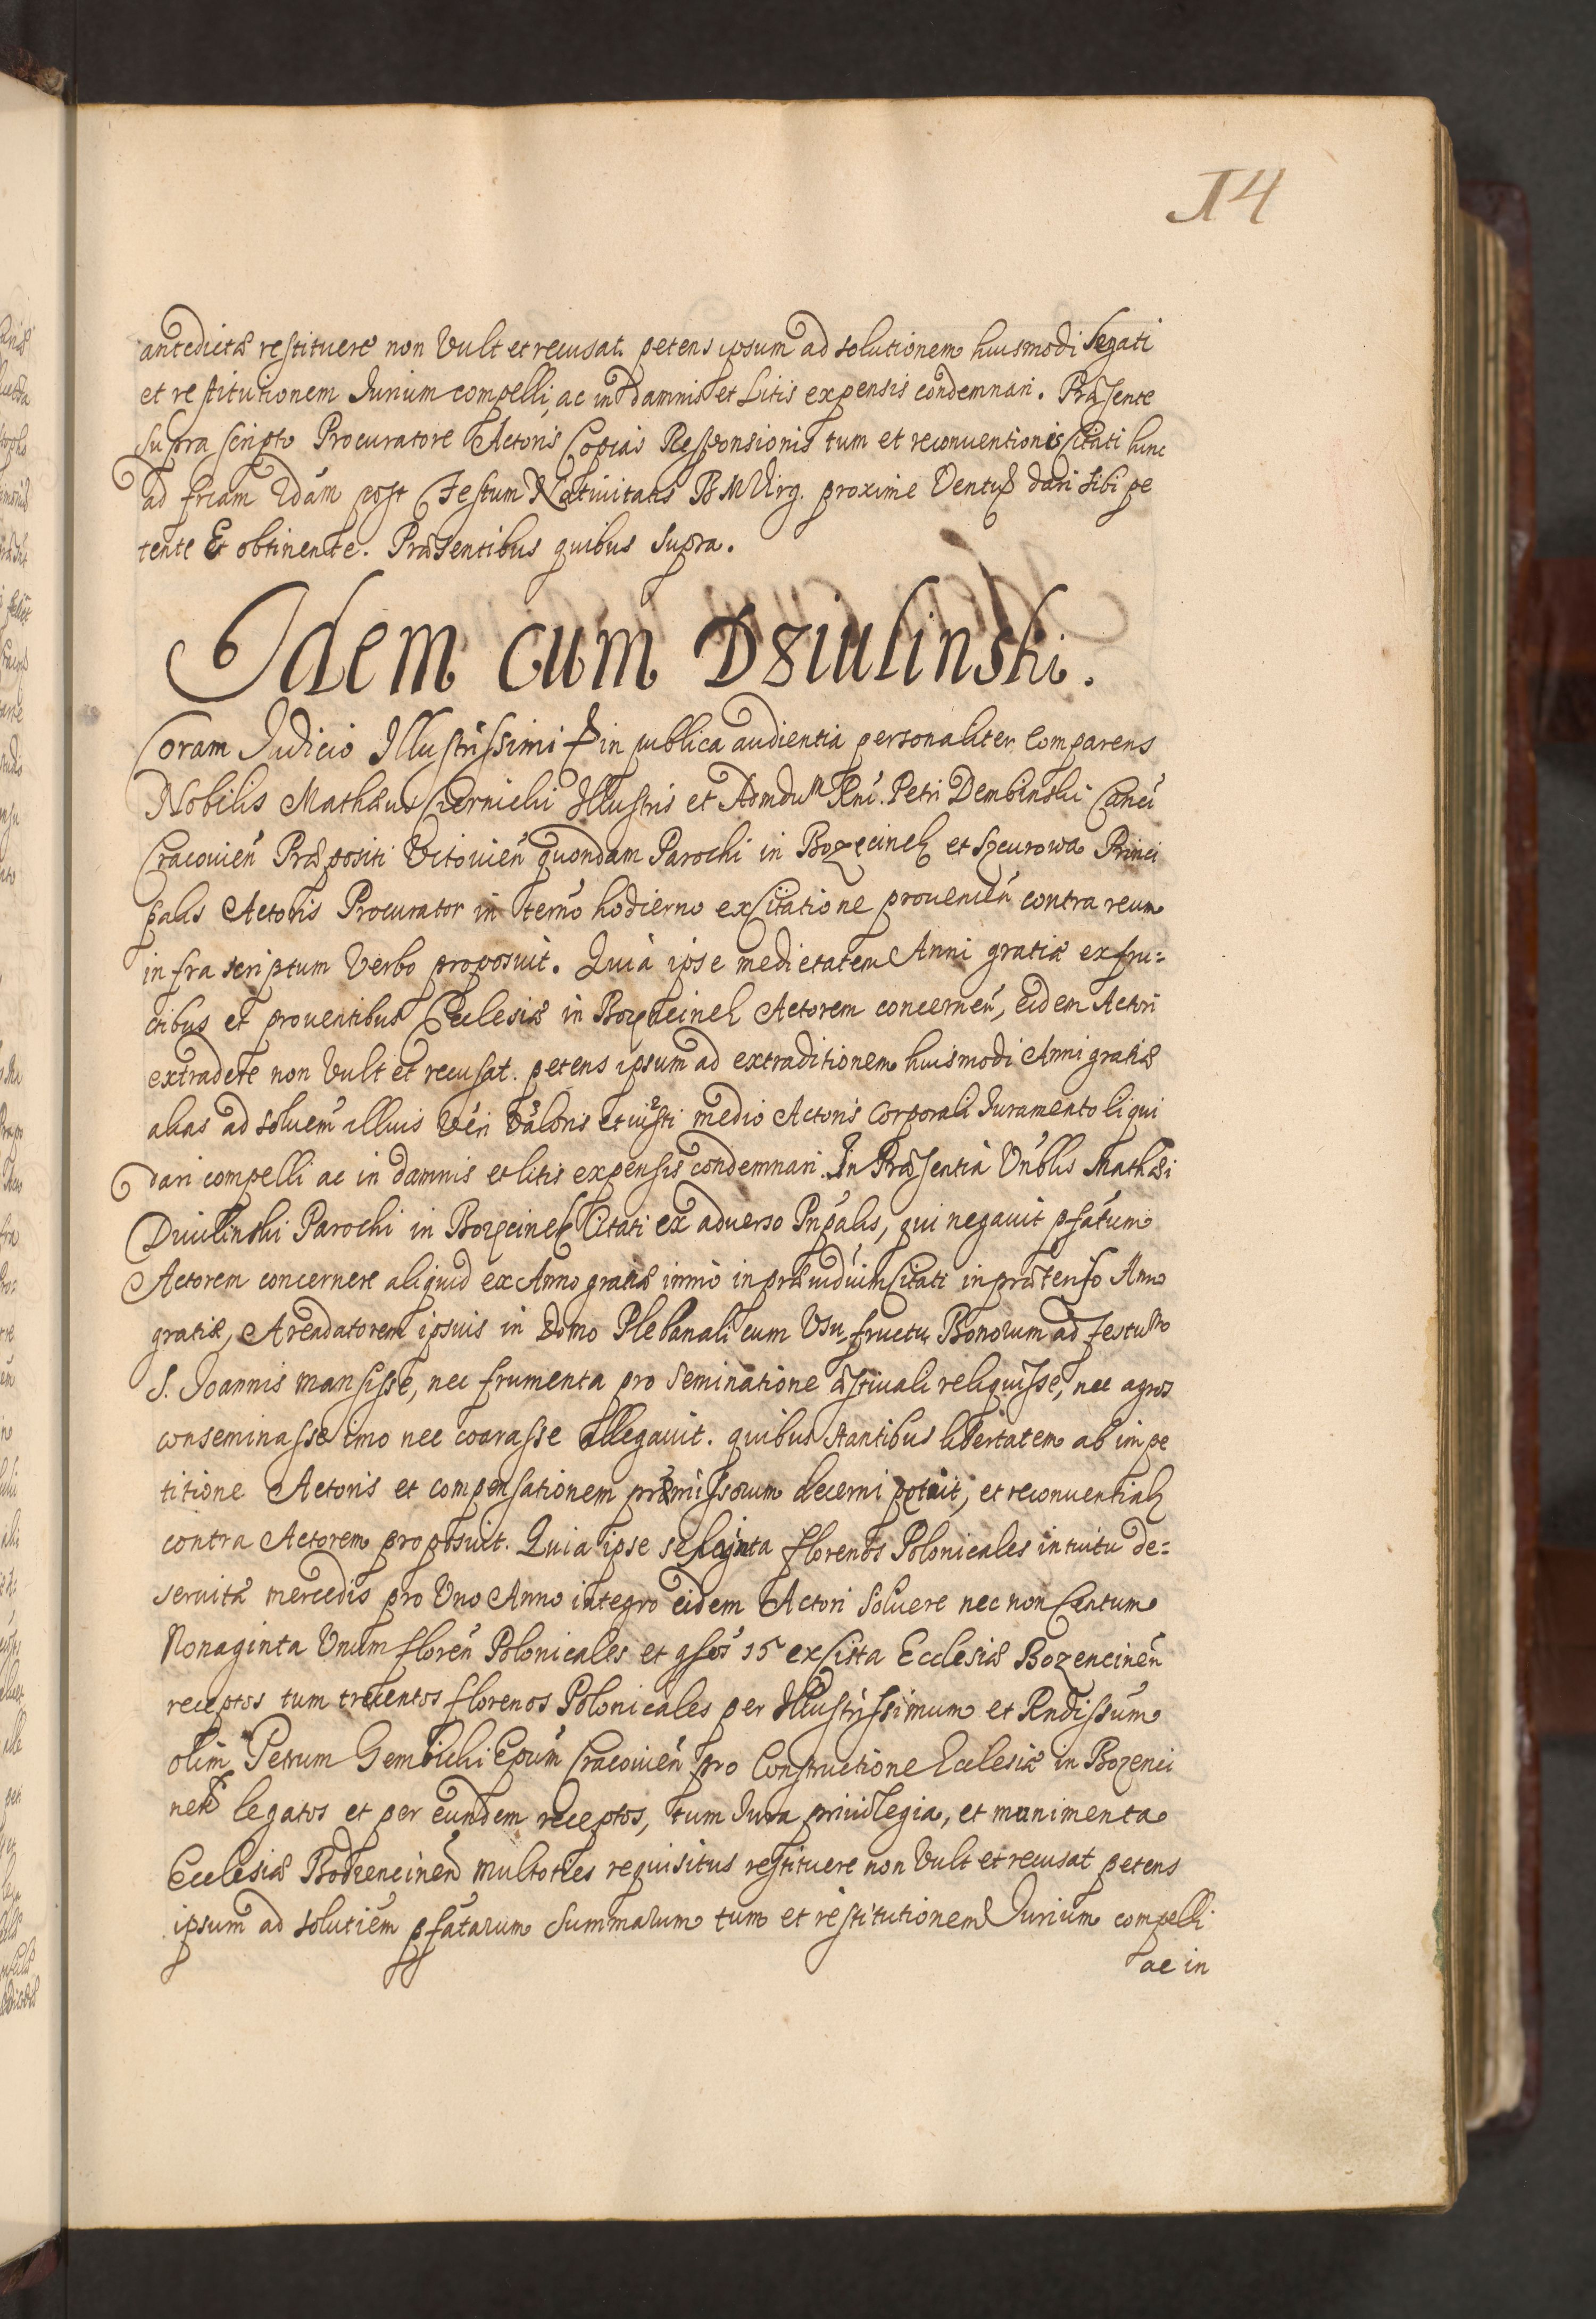 14
antedictæ restituere non Vult et recusat. petens ipsum ad solutionem huiusmodi legati
et restitutionem Iurium compelli, ac in damnis et Litis expensis condemnari. Præsente
Supra scripto Procuratore Actoris Copias Responsionis tum et reconuentionis Citati hinc
ad friam 2dam post Festum Natiuitatis B M Virg. proxime Ventur dari sibi pe
tente Et obtinente. Præsentibus quibus Supra.
Idem cum Dziulinski.
Coram Iudicio Illustrissimi in publica audientia personaliter Comparens
Nobilis Mathæus Czernichi Illustris et Admdum Rnd. Petri Dembinski Canci
Cracouien Præpositi Vitouien quondam Parochi in Bozecineh et Szcurowa Princi
palis Actoris Procurator in termo hodierno ex Citatione prouenien contra reum
infra scriptum Verbo proposuit. Quia ipse medietatem Anni gratiæ ex fru=
ctibus et prouentibus Ecclesiæ in Bozecineh Actorem concernen, eidem Actori
extradere non Vult et recusat. petens ipsum ad extraditionem huiusmodi Anni gratiæ
alias ad soluem illius Veri Valoris et iusti medio Actoris Corporali Iuramento liqui
dari compelli ac in damnis et litis expensis condemnari. In Præsentia Vnblis Mathæi
Diulinski Parochi in Bozecineh Citati ex aduerso Pnpalis, qui negauit pfatum
Actorem concernere aliquid ex Anno gratiæ immo in præiudium Citati in prætenso Anno
gratiæ, Areadatorem ipsius in Domo Plebanali cum Vsu-fructu Bonorum ad festum
S. Ioannis mansisse, nec frumenta pro Seminatione æstiuali reliquisse, nec agros
conseminasse imo nec coarasse Allegauit. quibus Stantibus libertatem ab impe
titione Actoris et compensationem præmissorum decerni petiit, et reconuentialr
contra Actorem proposuit. Quia ipse florenos Polonicales intuitu de=
seruitæ mercedis pro Vno Anno integro eidem Actori Soluere nec non Centum
Nonaginta Vnum floren Polonicales et gros 15 ex Cista Ecclesiæ Bozencinen
receptos tum trecentos florenos Polonicales per Illustrissimum et Rndissum
olim Petrum Gembicki Epum Cracouien pro Constructione Ecclesiæ in Bozenci
neh legatos et per eundem receptos, tum Iura priuilegia, et munimenta
Ecclesiæ Bodzencinen multoties requisitus restituere non Vult et recusat petens
ipsum ad solutiem pfatarum Summarum tum et restitutionem Iurium compelli
ac in